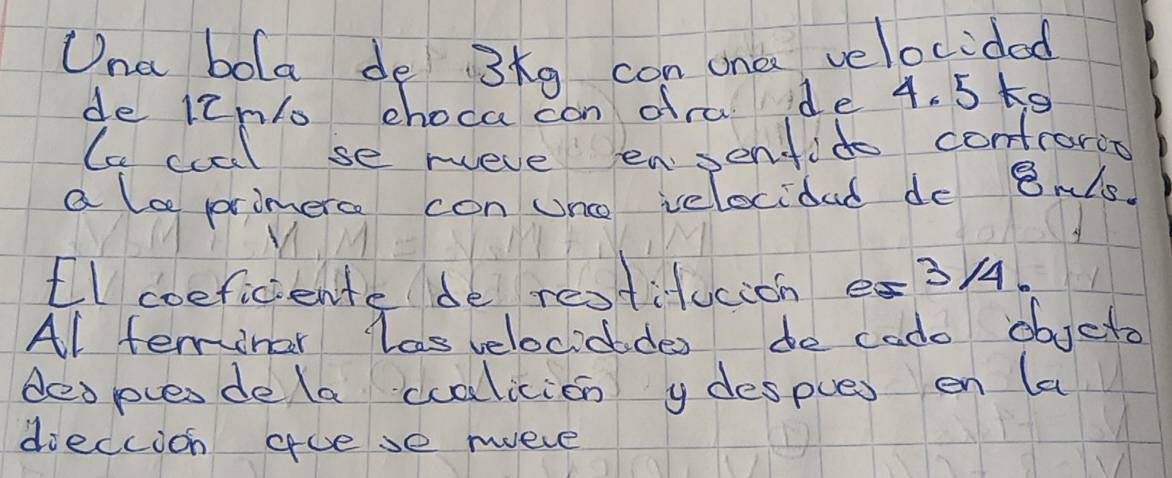 Una bola de 3kg con una velocidad
de 12m/s choca con otra de 4.5 kg
la cual se mueve en sentido contrario
a la primera con una velocidad de 8m/s.
El coeficiente de restitución es 3/4.
Al terminar las velocidades de cada objeto
despues de la coalición y despues en la
dirección que se mueve